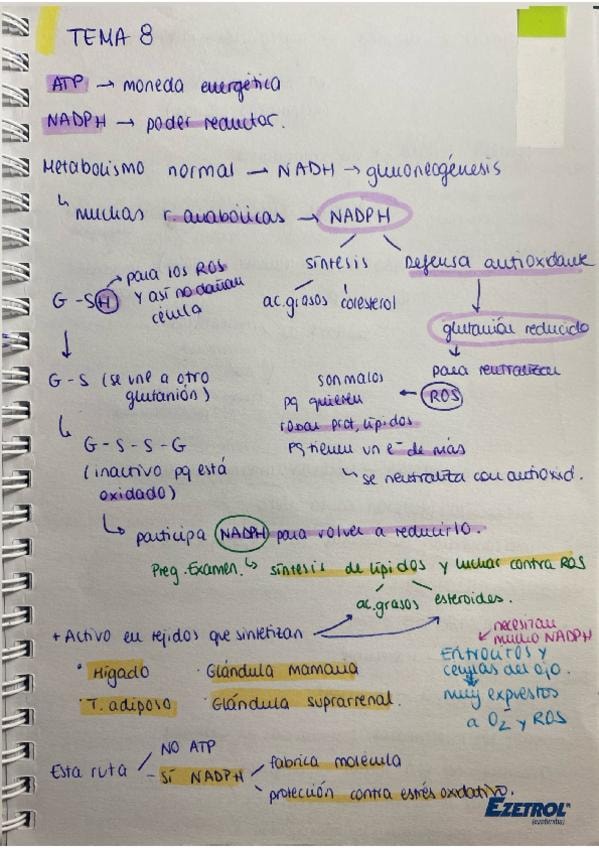 TEMA 8
ATP → moneda energética
NADPH → poder reductor.
Metabolismo normal → NADH → gluconeogénesis
↳ muchas r. anabólicas → NADPH
síntesis
Defensa antioxidante
ac. grasos colesterol
G-SH → para los ROS
y así no dañan
célula
glutatión reducido
↓
para neutralizar
ROS
G-S (se une a otro
glutatión)
son malos
pq quieren
robar prot, lípidos
pq tienen un e- de más
↳ se neutraliza con antioxid.
↳ G-S-S-G
(inactivo pq está
oxidado)
↳ participa NADPH para volver a reducirlo.
Preg. Examen. ↳ síntesis de lípidos y luchar contra ROS
ac. grasos esteroides.
+ Activo en tejidos que sintetizan
· Hígado · Glándula mamaria
· T. adiposo · Glándula suprarrenal.
necesitan
mucho NADPH
Eritrocitos y
células del ojo.
muy expuestos
a O2 y ROS
Esta ruta
NO ATP
SÍ NADPH
fabrica molécula
protección contra estrés oxidativo.
EZETROL
(ezetimiba)